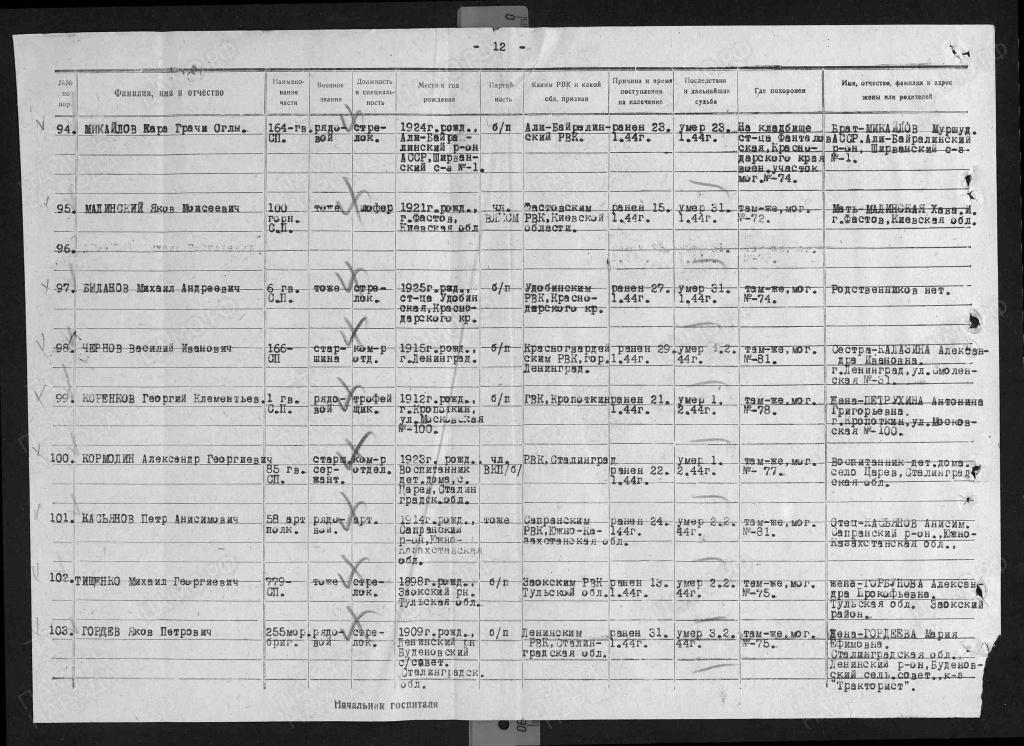 - 12 -
№№ по пор.
Фамилия, имя и отчество
Наимено-
вание
части
Военное
звание
Должность
и специаль-
ность
Место и год
рождения
Партий-
ность
Каким РВК и какой
обл. призван
Причина и время
поступления
на излечение
Последствия
и дальнейшая
судьба
Где похоронен
Имя, отчество, фамилия и адрес
жены или родителей
94. МИКАЙЛОВ Кара Грачи Оглы.
164-гв.
СП.
рядо-
вой
стре-
лок.
1924г.рожд.,
Али-Байра -
линский р-он
АССР,Ширван-
ский с-з №-1.
б/п
Али-Байралин-
ский РВК.
ранен 23.
1.44г.
умер 23.
1.44г.
На кладбище
ст-ца Фанталов
ская,Красно-
дарского края
воен.участок
мог.№-74.
Брат-МИКАЙЛОВ Муршуд.
АССР.Али-Байралинский
р-он, Ширванский с-з
№-1.
95. МАЛИНСКИЙ Яков Моисеевич
100
горн.
С.П.
тоже
шофер
1921г.рожд.,
г.Фастов,
Киевская обл
чл.
ВЛКСМ
Фастовским
РВК,Киевской
области.
ранен 15.
1.44г.
умер 31.
1.44г.
там-же,мог.
№-72.
Мать-МАЛИНСКАЯ Хава.И.
г.Фастов,Киевская обл.
96.
97. БИДАНОВ Михаил Андреевич
6 гв.
С.П.
тоже
стре-
лок.
1925г.ржд.,
ст-ца Удобин
ская,Красно-
дарского кр.
б/п
Удобинским
РВК,Красно-
дарского кр.
ранен 27.
1.44г.
умер 31.
1.44г.
там-же,мог.
№-74.
Родственников нет.
98. ЧЕРНОВ Василий Иванович
166-
СП
стар-
шина
ком-р
отд.
1915г.рожд.,
г.Ленинград.
б/п
Красногвардей
ским РВК,гор.
Ленинград.
ранен 29.
1.44г.
умер 1.2.
44г.
там-же,мог.
№-81.
Сестра-КАЛАЗИНА Алексан-
дра Ивановна.
г.Ленинград,ул.Смолен-
ская №-31.
99. КОРЕНКОВ Георгий Клементьев.
1 гв.
С.П.
рядо-
вой
трофей
щик.
1912г.рожд.,
г.Кропоткин,
ул.Московская
№-100.
б/п
ГВК,Кропоткин
ранен 21.
1.44г.
умер 1.
2.44г.
там-же,мог.
№-78.
Жена-ПЕТРУХИНА Антонина
Григорьевна.
г.Кропоткин,ул.Москов-
ская №-100.
100. КОРМОЛИН Александр Георгиевич
85 гв.
СП.
старш.
сер-
жант.
ком-р
отдел.
1923г. рожд.,
Воспитанник
дет.дома,с.
Царев,Сталин
градск.обл.
чл.
ВКП/б/
РВК,Сталинград
ранен 22.
1.44г.
умер 1.
2.44г.
там-же,мог.
№- 77.
Воспитанник дет.дома.
село Царев,Сталинград
ская обл.
101. КАСЬЯНОВ Петр Анисимович
58 арт
полк.
рядо-
вой.
арт.
1914г.рожд.,
Сапранский
р-он,Южно-
Казахстанская
обл.
тоже
Сапранским
РВК,Южно-Ка-
захстанская обл.
ранен 24.
144г.
умер 2.2.
44г.
там-же,мог.
№-81.
Отец-КАСЬЯНОВ Анисим.
Сапранский р-он.,Южно-
Казахстанская обл.,
102. ТИЩЕНКО Михаил Георгиевич
779-
СП.
тоже
стре-
лок.
1898г.рожд.,
Заокский рн.
Тульская обл.
б/п
Заокским РВК
Тульской обл.
ранен 13.
1.44г.
умер 2.2.
44г.
там-же,мог.
№-75.
жена-ГОРБУНОВА Алексан
дра Прокофьевна.
Тульская обл. Заокский
район.
103. ГОРДЕВ Яков Петрович
255мор.
бриг.
рядо-
вой
стре-
лок.
1909г.рожд.,
Ленинский рн
Буденовский
с/совет.
Сталинградск.
обл.
б/п
Ленинским
РВК,Сталин-
градская обл.
ранен 31.
1.44г.
умер 3.2.
44г.
там-же,мог.
№-75.
Жена-ГОРДЕЕВА Мария
Ефимовна.
Сталинградская обл.
Ленинский р-он,Буденов-
ский сель.совет.,к-з
"Тракторист".
Начальник госпиталя